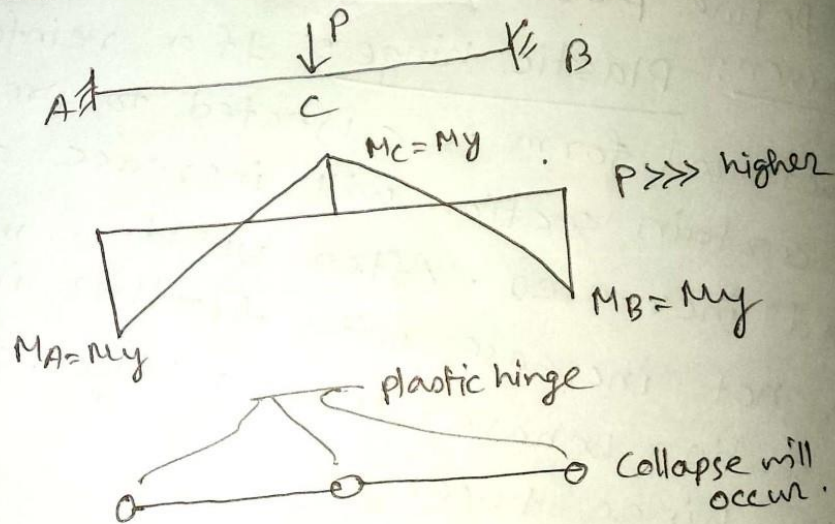 P
A
B
C
Mc = My
P >>> higher
MB = My
MA = My
plastic hinge
Collapse will
occur.